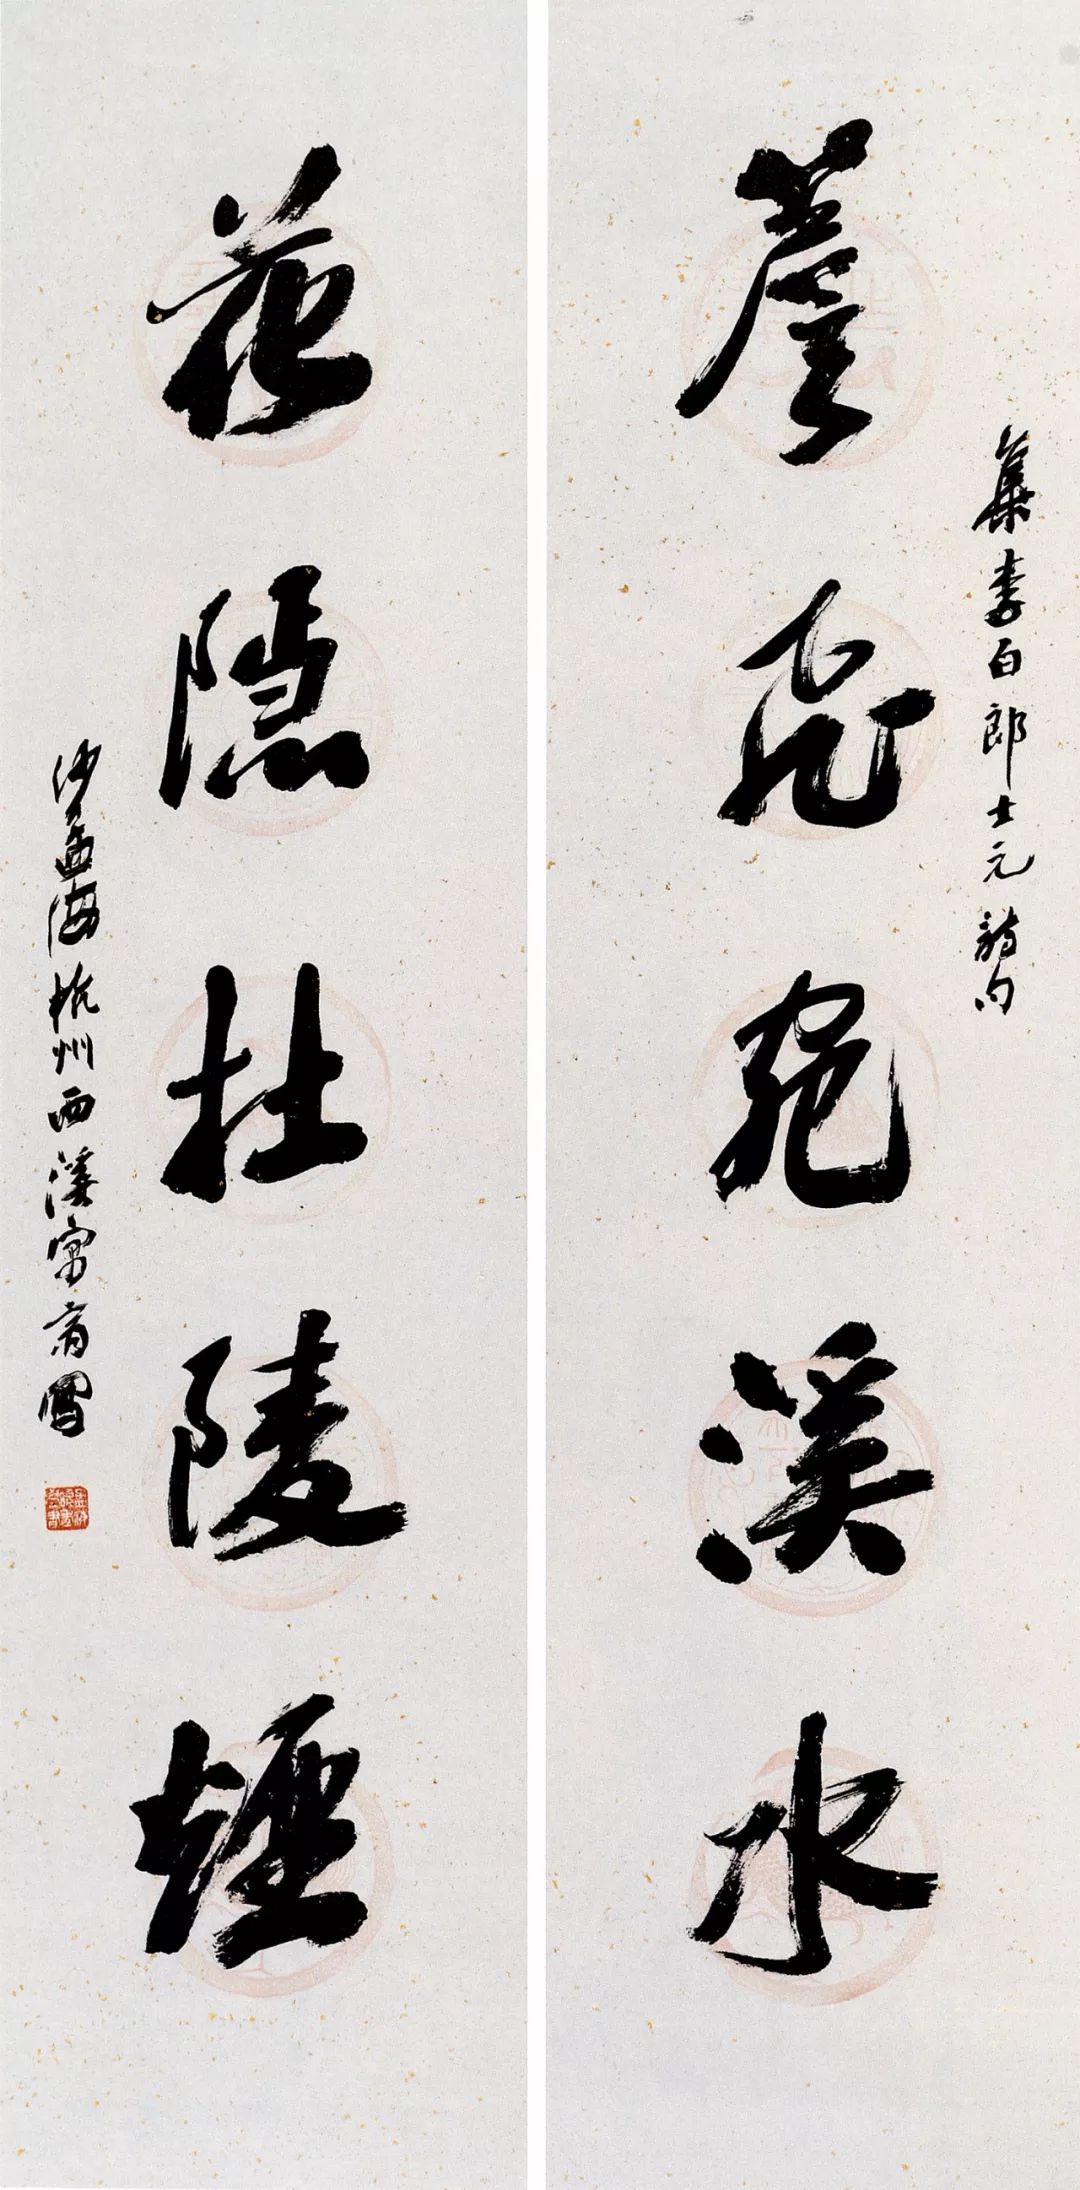 簷飛宛溪水
集李白郎士元詩句
花隱杜陵煙
沙孟海杭州西溪寓齋寫